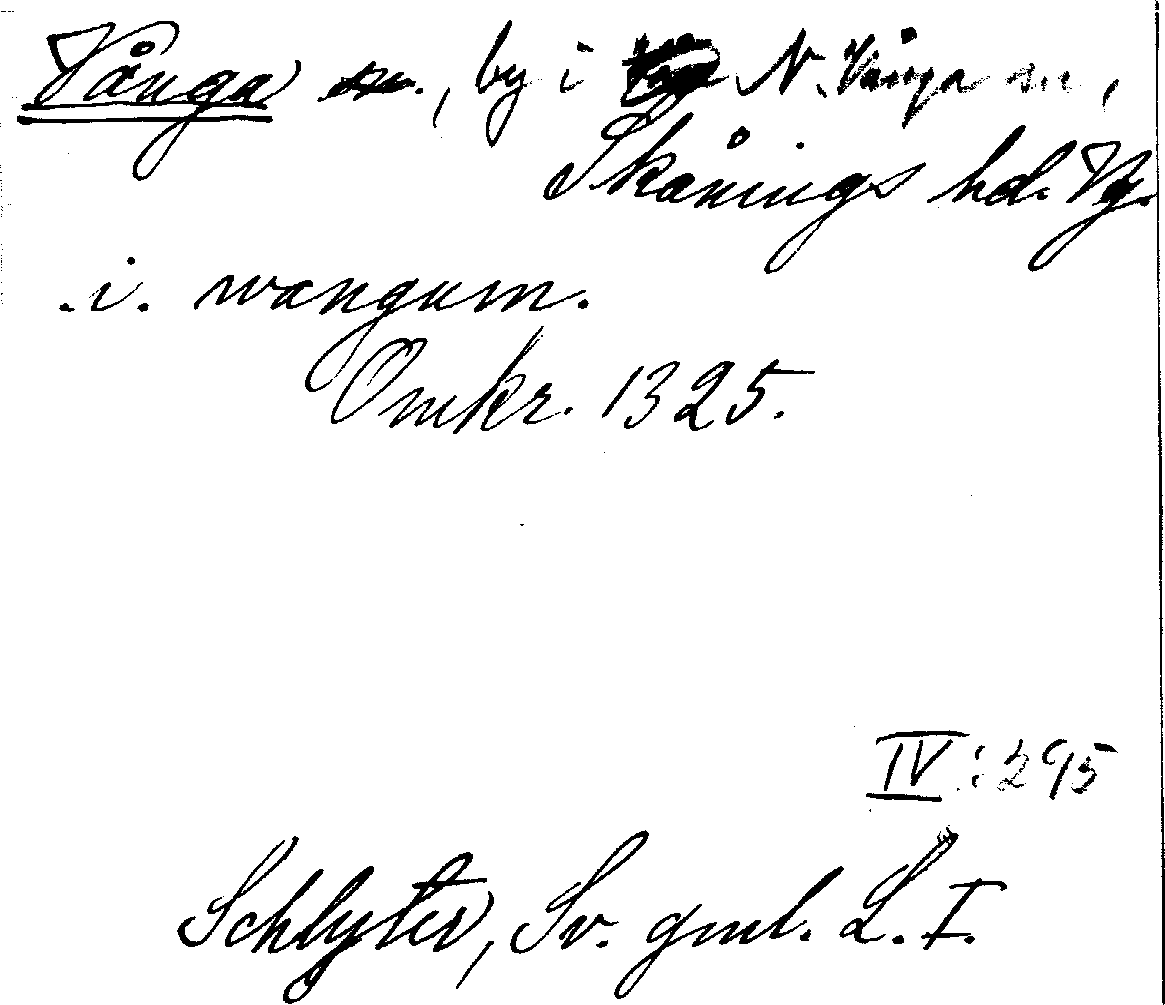 Vånga sn., by i N. Vånga sn,
Skånings hd. Vg.
.i. wangum.
Omkr. 1325.
IV: 295
Schlyter, Sv. gml. L. I.